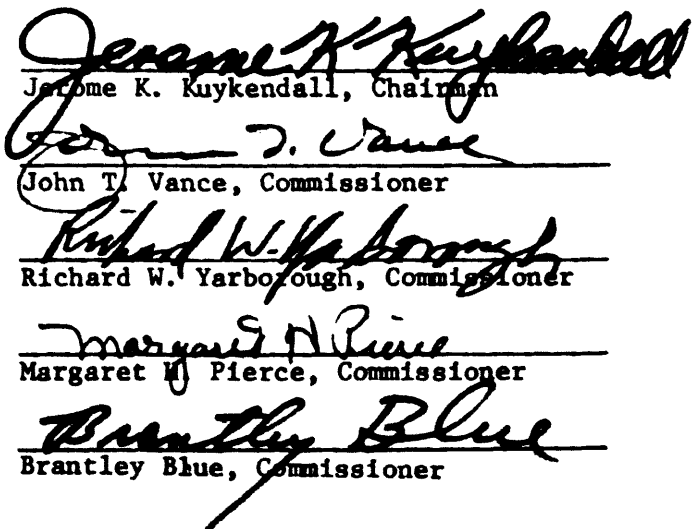 Jerome K Kuykendall
Jerome K. Kuykendall, Chairman
John T. Vance
John T. Vance, Commissioner
Richard W. Yarborough
Richard W. Yarborough, Commissioner
Margaret H Pierce
Margaret H. Pierce, Commissioner
Brantley Blue
Brantley Blue, Commissioner